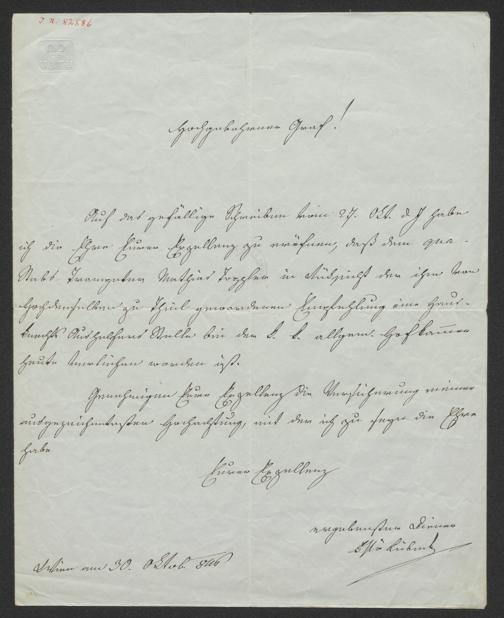 J. N. 82586
Hochgebohrner Graf!
Auf das gefällige Schreiben vom 27. Okt. d J habe
ich die Ehre Eurer Exzellenz zu eröfnen, daß dem gua-
Stabs Trompeter Mathias in Rücksicht der ihm von
Hochdenselben zu Theil gewordenen Empfehlung eine Haus-
knechts Aushelfers Stelle bei der k. k. allgem. Hofkammer
heute verliehen worden ist.
Genehmigen Eure Exzellenz die Versicherung meiner
ausgezeichnetesten Hochachtung, mit der ich zu seyn die Ehre
habe
Eurer Exzellenz
ergebenster Diener
Wien am 30. Oktob. 846